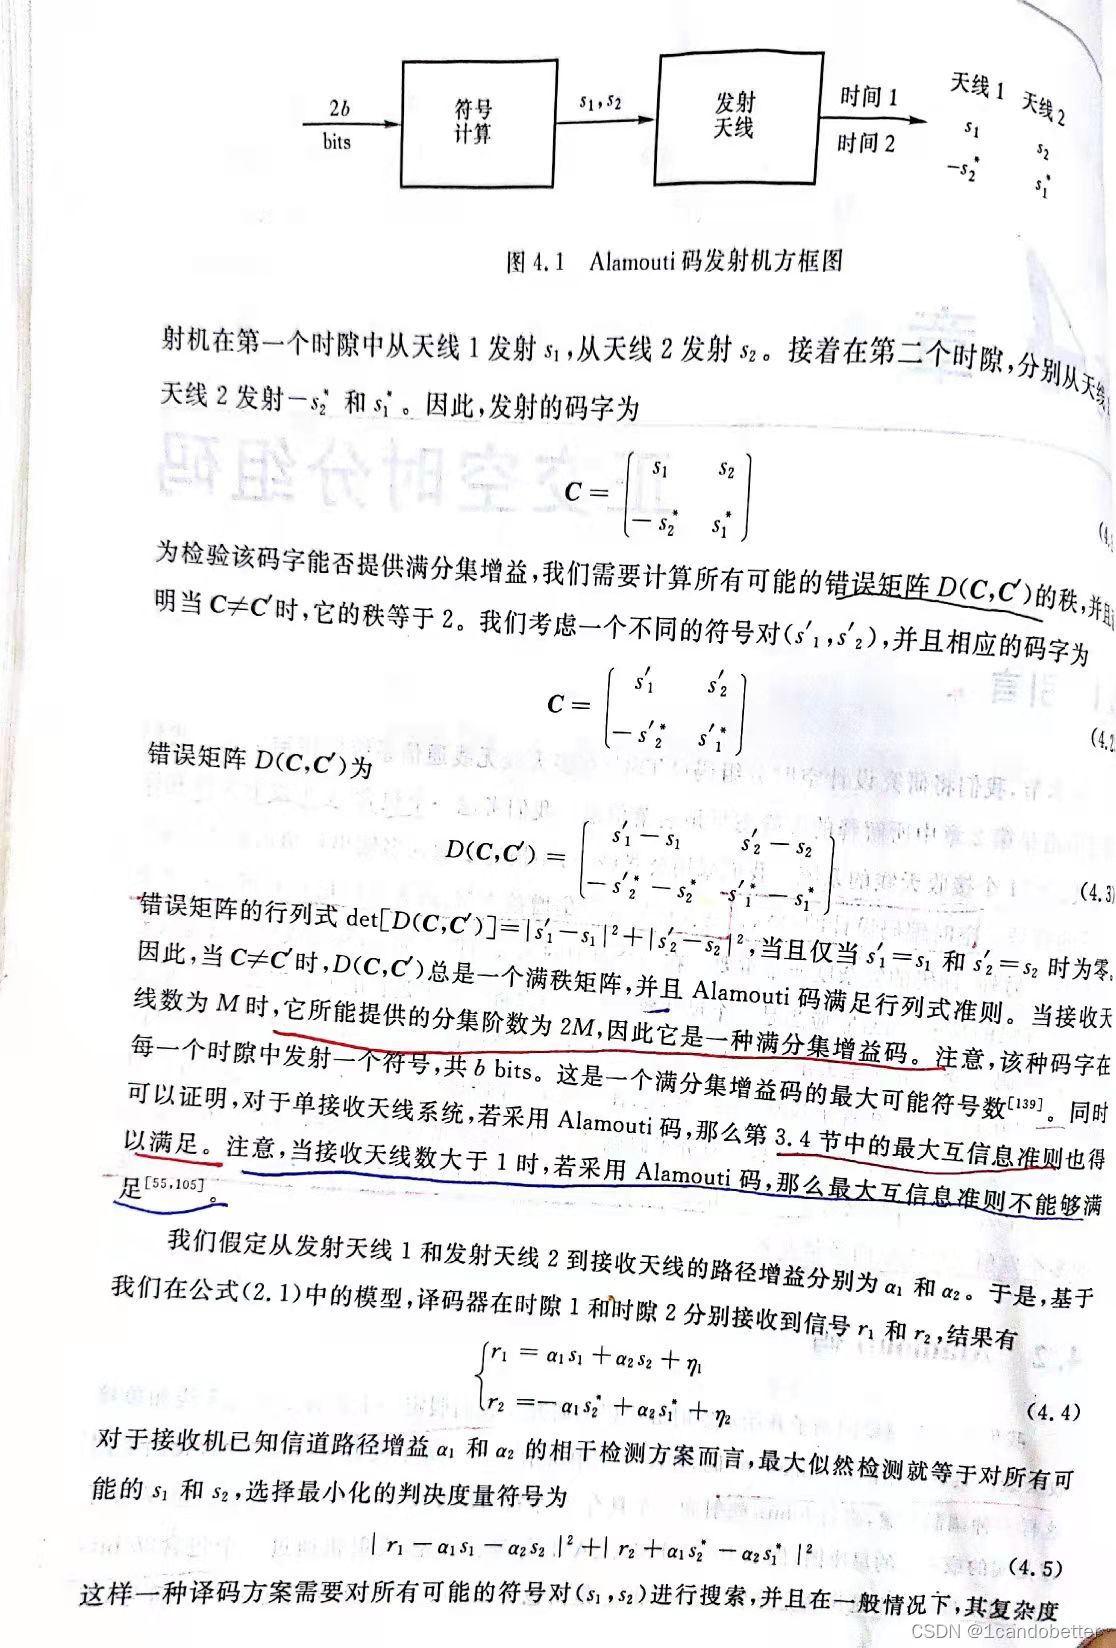 2b
bits
符号
计算
s₁,s₂
发射
天线
时间 1
时间 2
天线 1 天线 2
s₁ s₂
-s₂* s₁*
图 4.1 Alamouti 码发射机方框图
射机在第一个时隙中从天线 1 发射 s₁,从天线 2 发射 s₂。接着在第二个时隙,分别从天线
天线 2 发射-s₂* 和 s₁*。因此,发射的码字为
C = [ s₁ s₂
-s₂* s₁* ]
为检验该码字能否提供满分集增益,我们需要计算所有可能的错误矩阵 D(C,C′)的秩,并且
明当 C≠C′时,它的秩等于 2。我们考虑一个不同的符号对(s′₁,s′₂),并且相应的码字为
C = [ s′₁ s′₂
-s′₂* s′₁* ]
(4.2
错误矩阵 D(C,C′)为
D(C,C′) = [ s′₁-s₁ s′₂-s₂
-s′₂*-s₂* -s′₁*-s₁* ]
(4.3)
错误矩阵的行列式 det[D(C,C′)]=|s′₁-s₁|²+|s′₂-s₂|²,当且仅当 s′₁=s₁ 和 s′₂=s₂ 时为零。
因此,当 C≠C′时,D(C,C′)总是一个满秩矩阵,并且 Alamouti 码满足行列式准则。当接收天
线数为 M 时,它所能提供的分集阶数为 2M,因此它是一种满分集增益码。注意,该种码字在
每一个时隙中发射一个符号,共 b bits。这是一个满分集增益码的最大可能符号数[139]。同时
可以证明,对于单接收天线系统,若采用 Alamouti 码,那么第 3.4 节中的最大互信息准则也得
以满足。注意,当接收天线数大于 1 时,若采用 Alamouti 码,那么最大互信息准则不能够满
足[55,105]。
我们假定从发射天线 1 和发射天线 2 到接收天线的路径增益分别为 α₁ 和 α₂。于是,基于
我们在公式(2.1)中的模型,译码器在时隙 1 和时隙 2 分别接收到信号 r₁ 和 r₂,结果有
{ r₁ = α₁s₁ + α₂s₂ + η₁
r₂ =-α₁s₂* + α₂s₁* + η₂
(4.4)
对于接收机已知信道路径增益 α₁ 和 α₂ 的相干检测方案而言,最大似然检测就等于对所有可
能的 s₁ 和 s₂,选择最小化的判决度量符号为
| r₁ - α₁s₁ - α₂s₂ |² + | r₂ + α₁s₂* - α₂s₁* |²
(4.5)
这样一种译码方案需要对所有可能的符号对(s₁,s₂)进行搜索,并且在一般情况下,其复杂度
CSDN @1candobetter